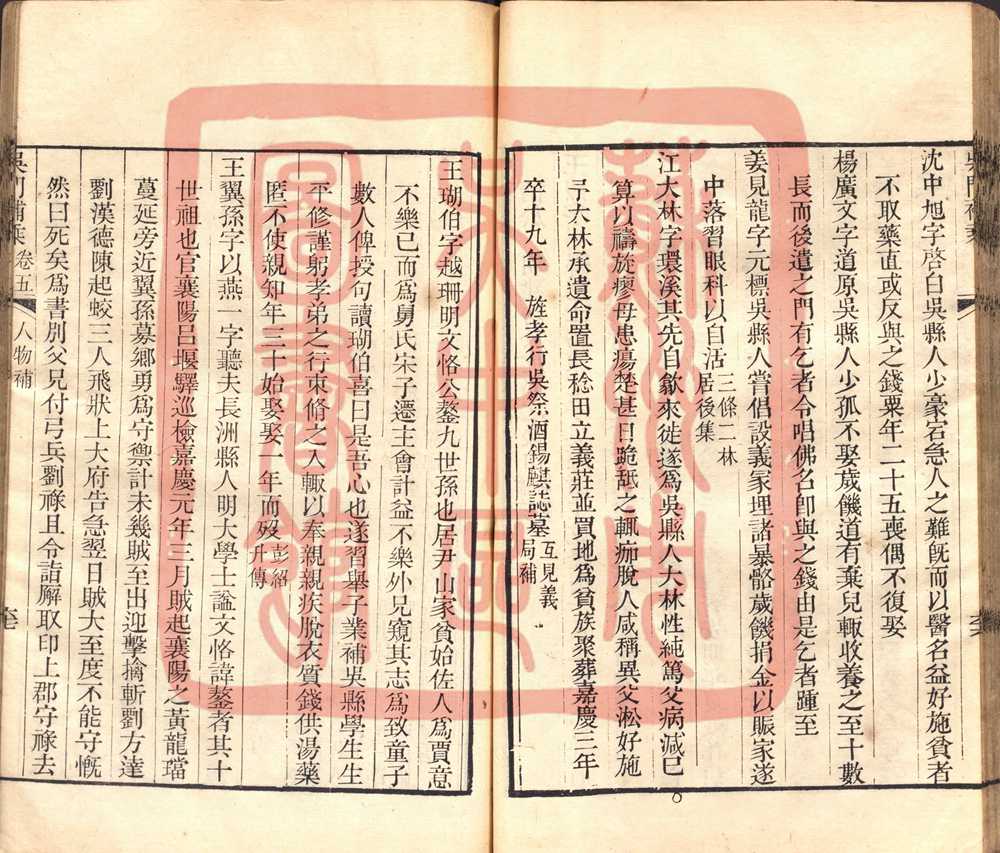 沈中旭字啓曰吳縣人少豪宕急人之難旣而以醫名益好施貧者
不取藥直或反與之錢粟年二十五喪偶不復娶
楊廣文字道原吳縣人少孤不娶歲饑道有棄兒輒收養之至十數
長而後遣之門有乞者令唱佛名卽與之錢由是乞者踵至
姜見龍字元標吳縣人嘗倡設義冢埋諸暴骼歲饑捐金以賑家遂
中落習眼科以自活三條二林居後集
江大林字環溪其先自歙來徙遂爲吳縣人大林性純篤父病減己
算以禱旋瘳母患瘍楚甚日跪舐之輒痂脫人咸稱異父淞好施
予大林承遺命置長稔田立義莊並買地爲貧族聚葬嘉慶三年
卒十九年 旌孝行吳祭酒錫麒誌墓互見義局補
王瑚伯字越珊明文恪公鏊九世孫也居尹山家貧始佐人爲賈意
不樂已而爲舅氏宋子遷主會計益不樂外兄窺其志爲致童子
數人俾授句讀瑚伯喜曰是吾心也遂習舉子業補吳縣學生生
平修謹躬孝弟之行束脩之入輒以奉親親疾脫衣質錢供湯藥
匿不使親知年三十始娶娶一年而歿彭紹升傳
王翼孫字以燕一字聽夫長洲縣人明大學士謚文恪諱鏊者其十
世祖也官襄陽呂堰驛巡檢嘉慶元年三月賊起襄陽之黃龍壋
蔓延旁近翼孫募鄉勇爲守禦計未幾賊至出迎擊擒斬劉方達
劉漢德陳起蛟三人飛狀上大府告急翌日賊大至度不能守慨
然曰死矣爲書別父兄付弓兵劉祿且令詣廨取印上郡守祿去
卷五
人物補